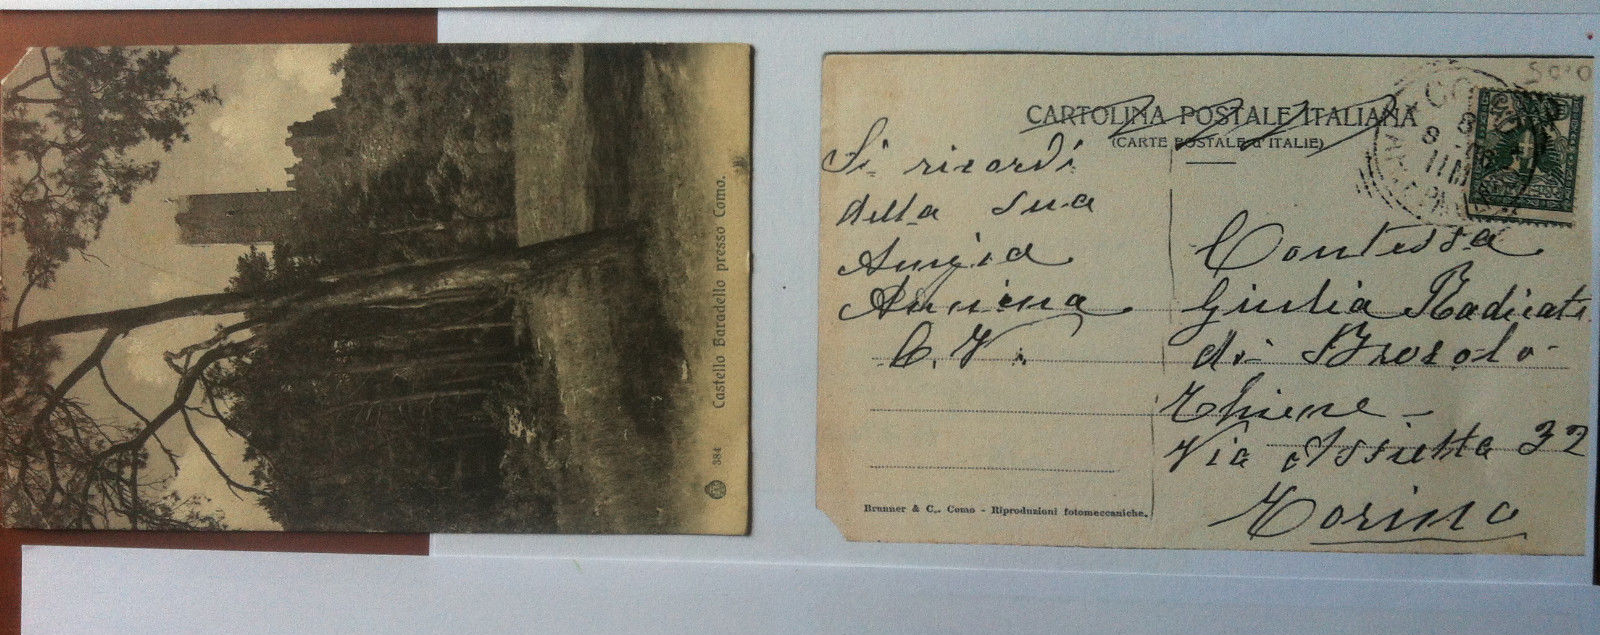 Castello Baradello presso Como.
384
CARTOLINA POSTALE ITALIANA
(CARTE POSTALE d'ITALIE)
COMO
8
11 M
Si ricordi
della sua
Amica
Annina
C. V.
Contessa
Giulia Radicati
di Brosolo
Via Assietta 32
Torino
Brunner & C., Como - Riproduzioni fotomeccaniche.